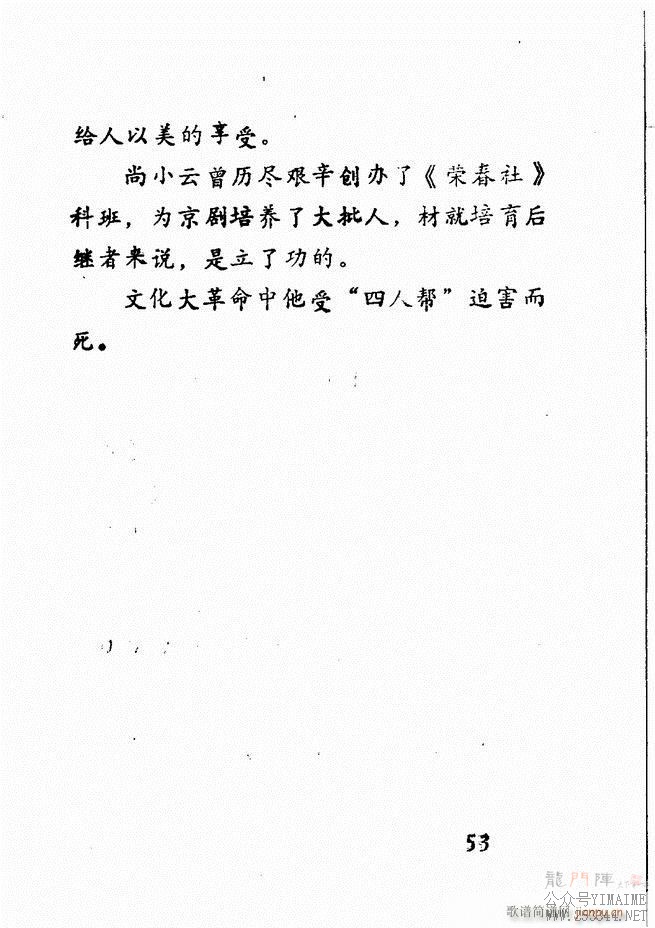 给人以美的享受。
尚小云曾历尽艰辛创办了《荣春社》
科班，为京剧培养了大批人，材就培育后
继者来说，是立了功的。
文化大革命中他受“四人帮”迫害而
死。
53
龍門陣
公众号YIMAIME
歌谱简谱网